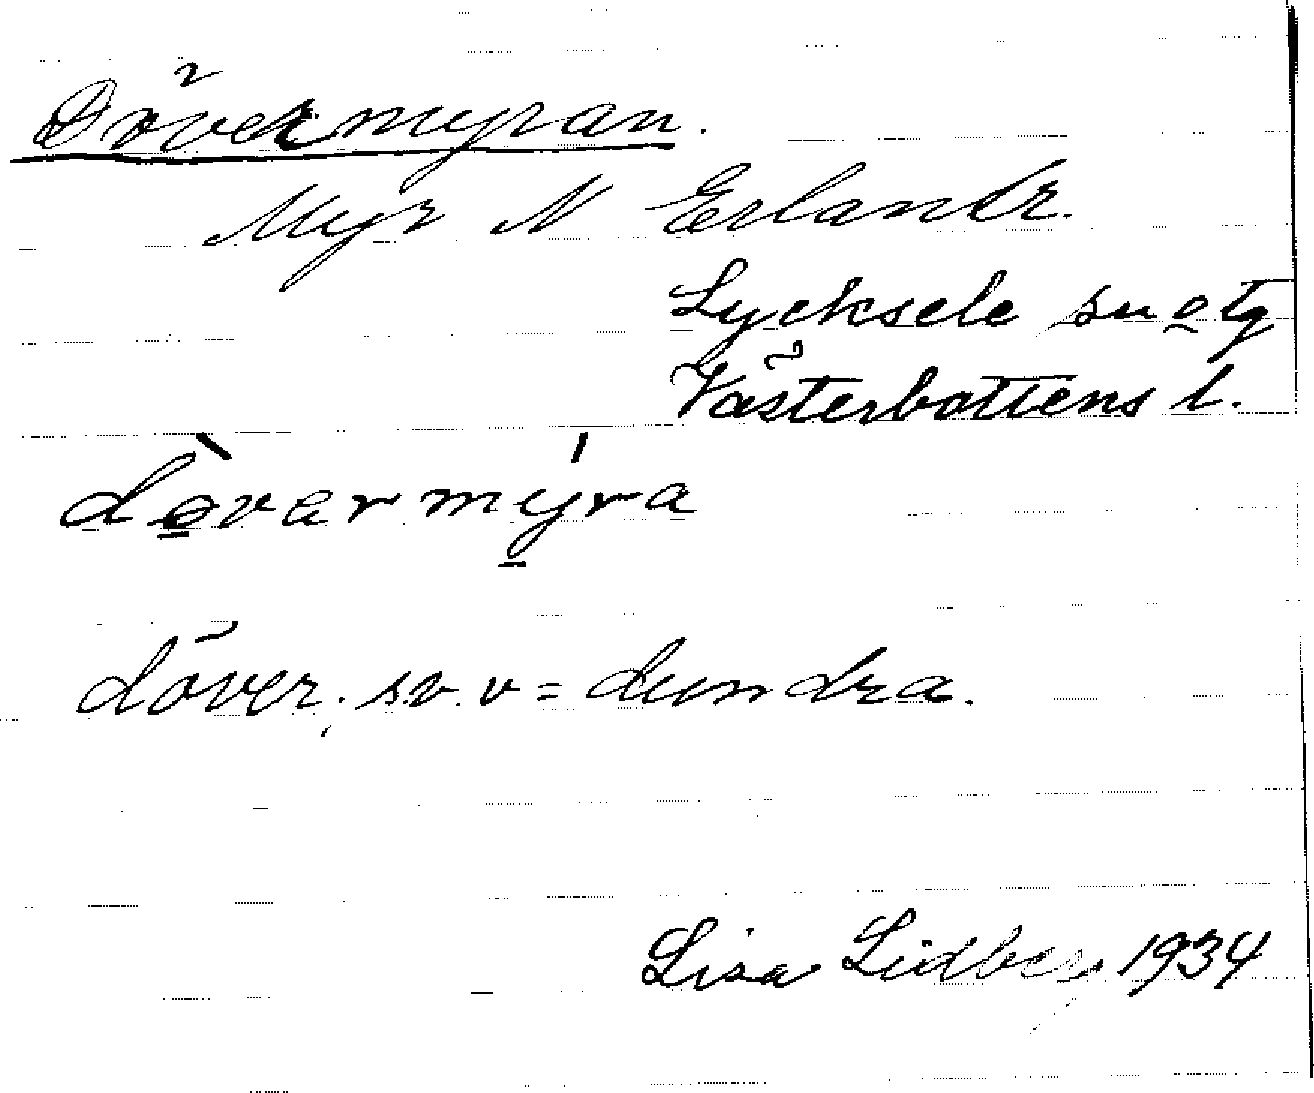 Dövermyran.
Myr N Erlandr.
Lycksele sn o tg
Västerbottens l.
dòvermýra
döver. sv. v = dundra.
Lisa Lidberg 1934